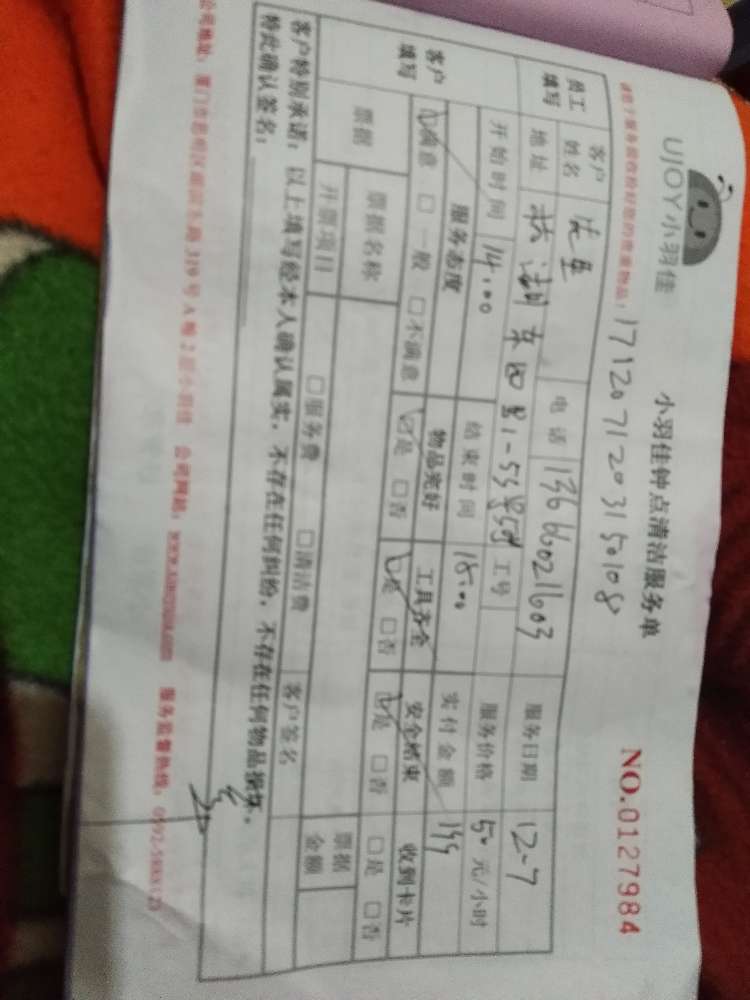 UJOY小羽佳
小羽佳钟点清洁服务单
NO.0127984
请您于服务前收检好您的贵重物品:
1712071203150108
员工填写
客户姓名
电话 13660021603
服务日期 12-7
地址
工号
服务价格 50元/小时
开始时间 14:00
结束时间 18:00
实付金额
客户填写
服务态度
物品完好
工具齐全
安全结束
收到卡片
☑满意 □一般 □不满意
☑是 □否
☑是 □否
☑是 □否
□是 □否
票据
票据名称
□服务费 □清洁费
票据金额
开票项目
客户签名
客户特别承诺:以上填写经本人确认属实,不存在任何纠纷,不存在任何物品损坏。
特此确认签名:
公司地址:厦门市思明区 319号A幢2层小羽佳 公司网站: 服务监督热线: